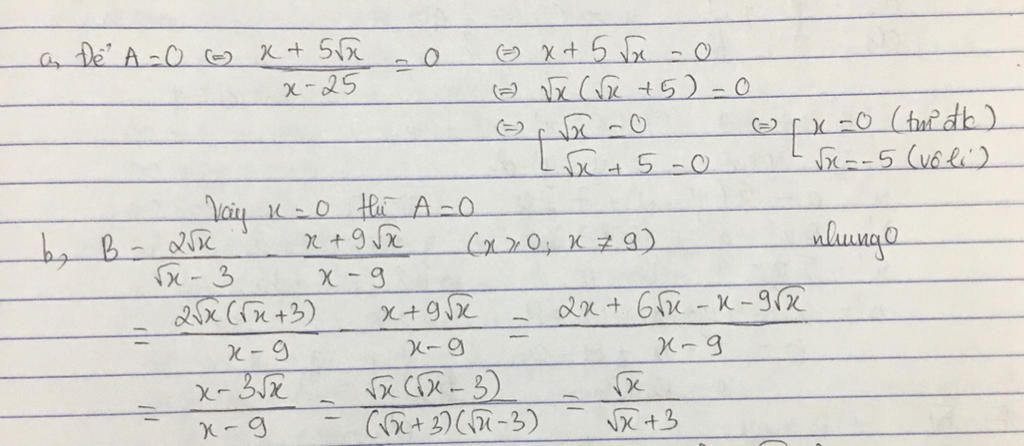 a, Để A = 0 ⇔ (x + 5√x)/(x - 25) = 0 ⇔ x + 5√x = 0
⇔ √x (√x + 5) = 0
⇔ [ √x = 0 ⇔ [ x = 0 (tmđk)
√x + 5 = 0 √x = -5 (vô lí)
Vậy x = 0 thì A = 0
b, B = 2√x/(√x - 3) - (x + 9√x)/(x - 9) (x ≥ 0; x ≠ 9) nhung0
= 2√x(√x + 3)/(x - 9) - (x + 9√x)/(x - 9) = (2x + 6√x - x - 9√x)/(x - 9)
= (x - 3√x)/(x - 9) = √x(√x - 3)/((√x + 3)(√x - 3)) = √x/(√x + 3)